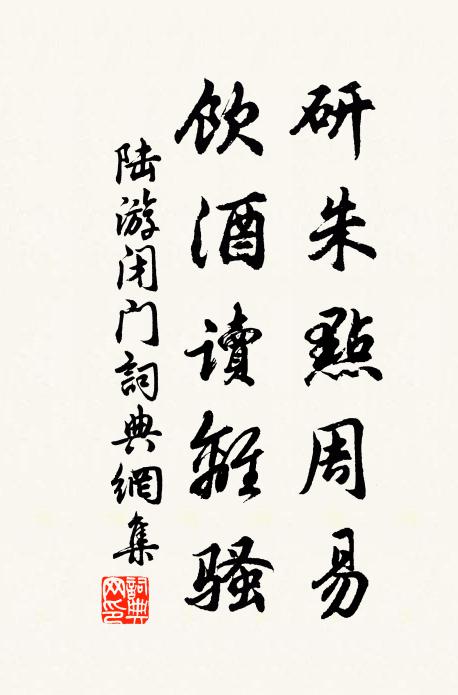 研朱點周易
飲酒讀離騷
陆游闭门詞典網集
詞典网印